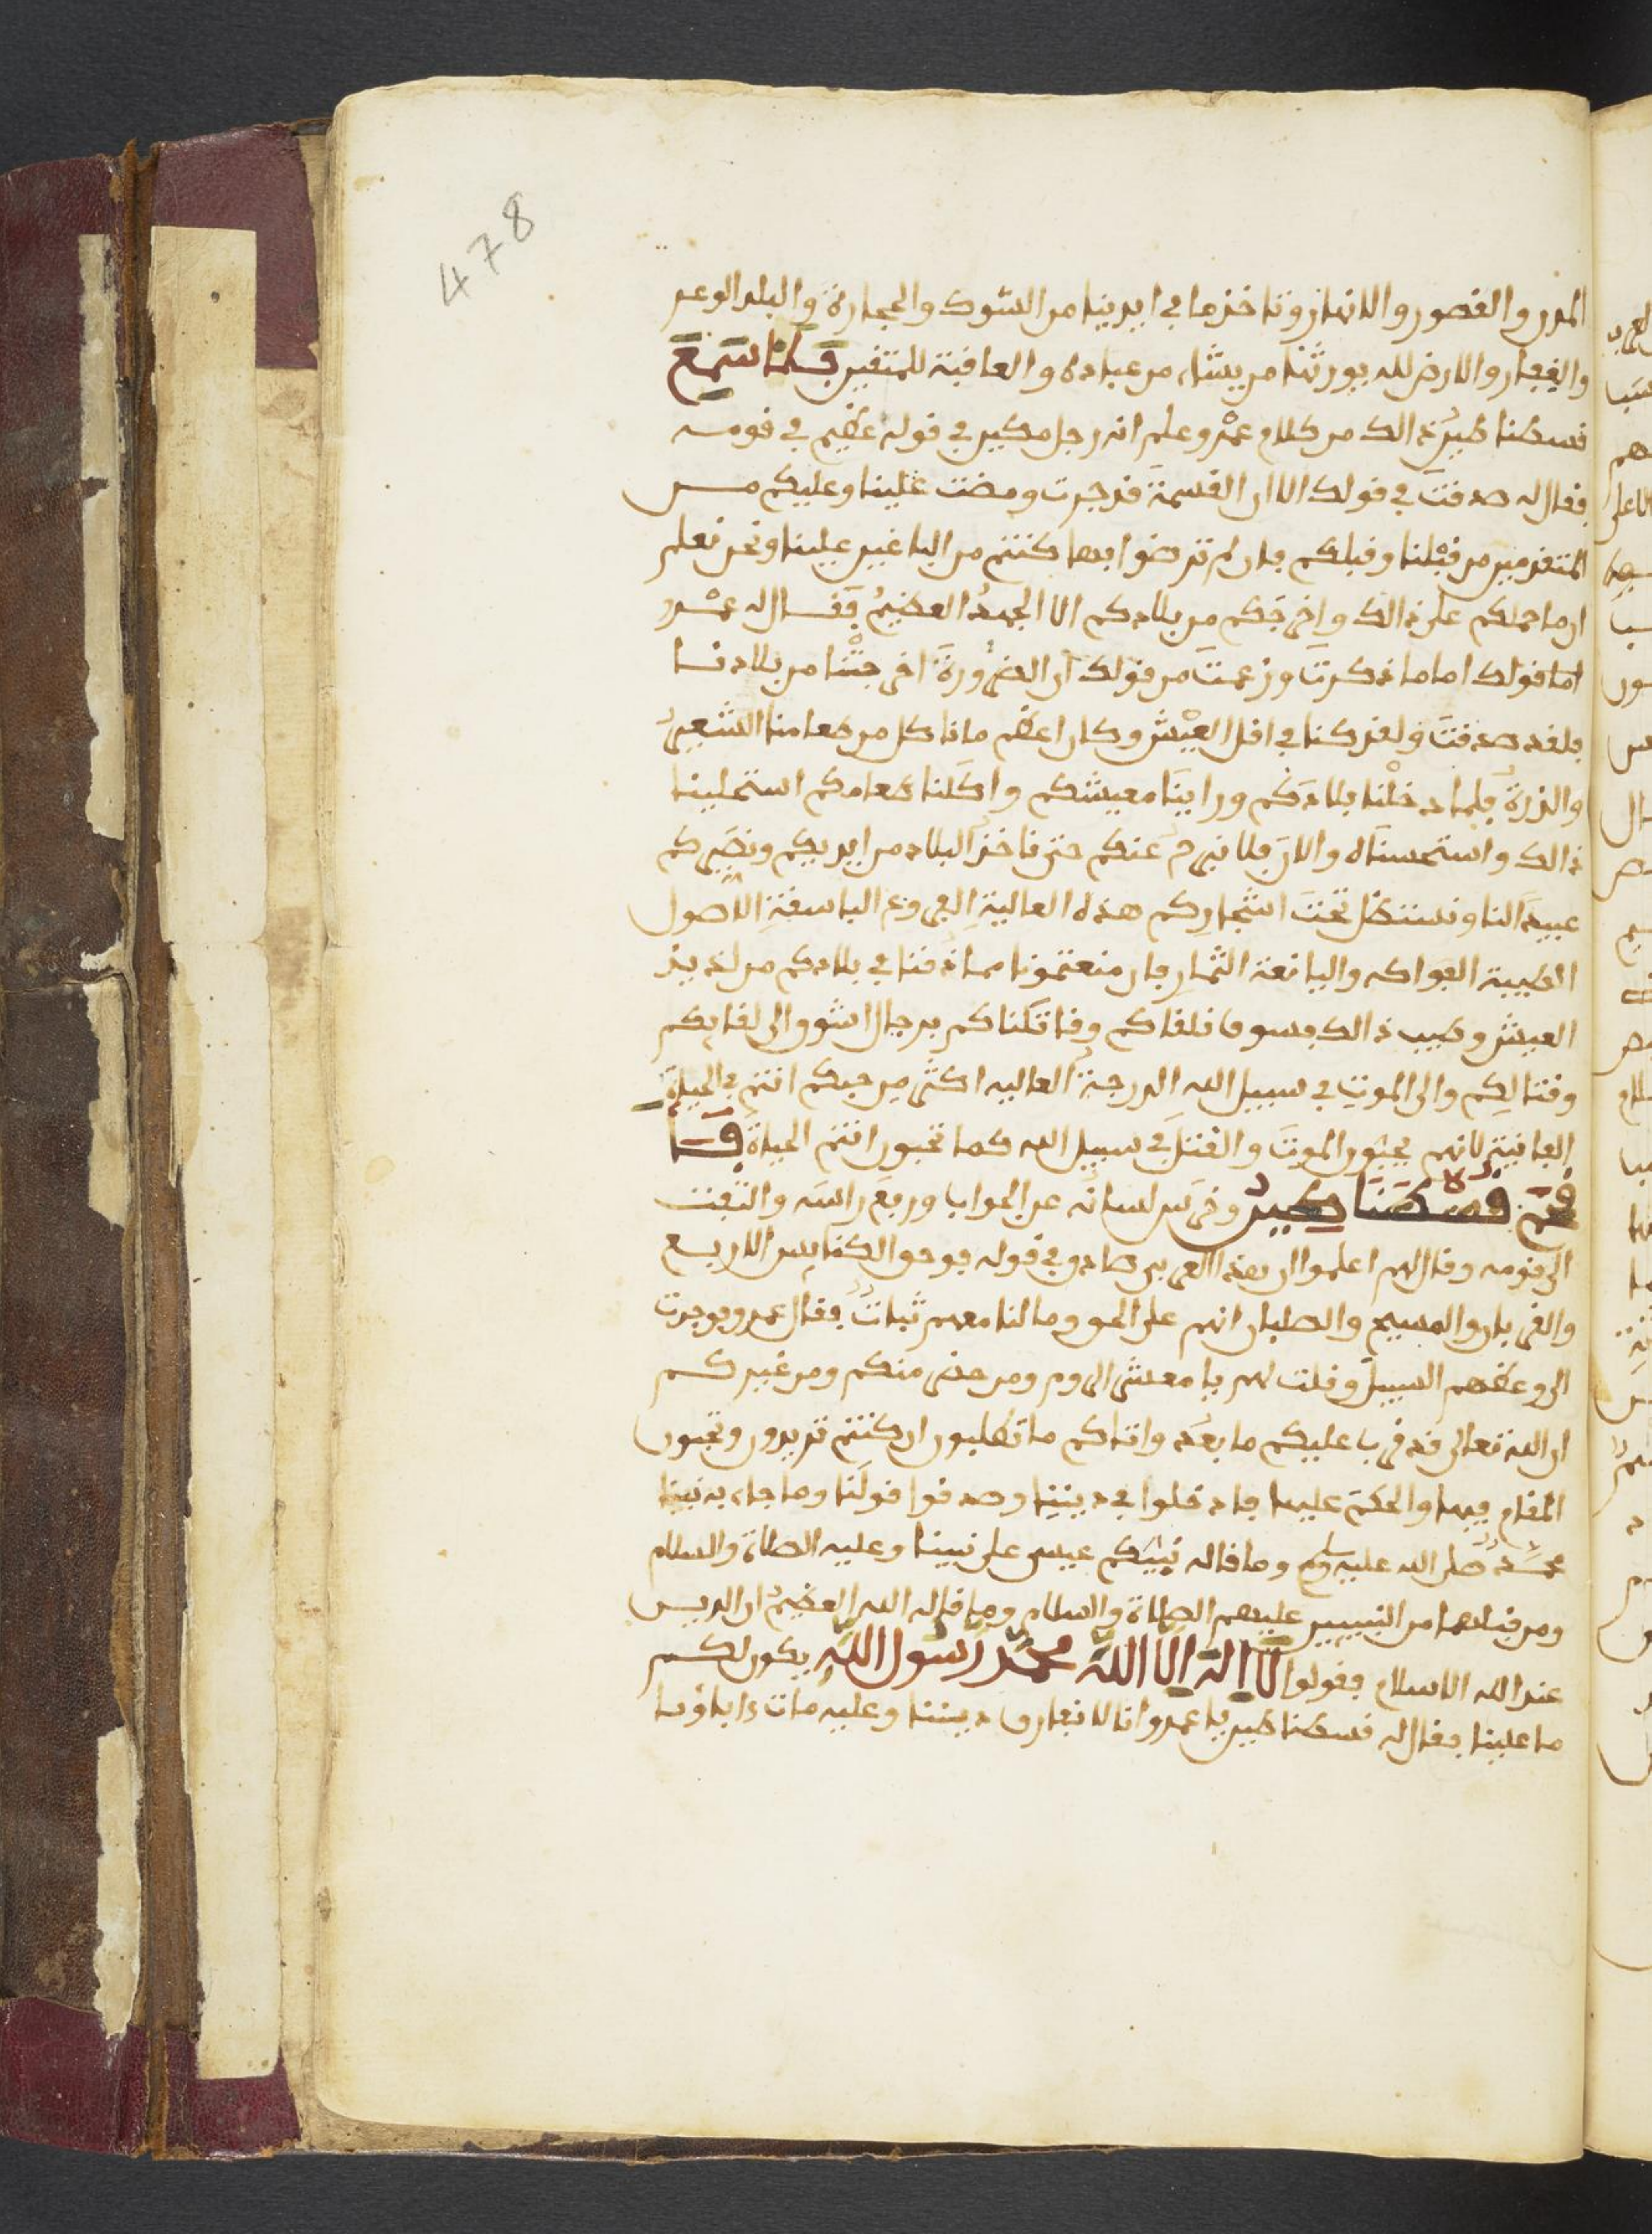 478
المدن والقصور والانهار وتاخذ ما في ايدينا من الشوك والحجارة والبلد الوعر
والقفار والارض لله يورثها من يشاء من عباده والعاقبة للمتقين فلما سمع
قسطنطين ذالك من كلام عمرو علم انه رجل مكين في قوله عظيم في قومه
فقال له صدقت في قولك الا ان القسمة قد جرت ومضت علينا وعليكم من
المتقدمين من قبلنا وقبلكم فان لم ترضوا بها كنتم من الباغين علينا ونحن نعلم
ان ما حملكم على ذالك واخرجكم من بلادكم الا الجهد العظيم فقال له عمرو
اما قولك اما ما ذكرت وزعمت من قولك ان الضرورة اخرجتنا من بلادنا
فلقد صدقت ولقد كنا في اقل العيش وكان اعظم ما ناكل من طعامنا الشعير
والذرة فلما دخلنا بلادكم وراينا معيشكم واكلنا طعامكم استحلينا
ذالك واستحسناه والان فلا نبرح عنكم حتى ناخذ البلاد من ايديكم ونصيركم
عبيدا لنا ونستظل تحت اشجاركم هذه العالية الفروع الباسقة الاصول
الطيبة الفواكه واليانعة الثمار فان منعتمونا مما ذقنا في بلادكم من لذيذ
العيش وطيب ذالك فسوف نلقاكم وقاتلناكم برجال اشوق الى لقايكم
وقتالكم والى الموت في سبيل الله الدرجة العالية اكثر من حبكم انتم في الحياة
الفانية لانهم يحبون الموت والقتل في سبيل الله كما تحبون انتم الحياة قال
فهم قسطنطين وخرس لسانه عن الجواب ورفع راسه والتفت
الى قومه وقال لهم اعلموا ان هذا العربي صادق في قوله فوحق الكنايس الاربع
والقربان والمسيح والصلبان انهم على الحق وما لنا معهم ثبات فقال عمرو فوجدت
الى وعظهم السبيل وقلت لهم يا معشر الروم ومن حضر منكم ومن غيركم
ان الله تعالى قد قرب عليكم ما بعد واتاكم ما تطلبون ان كنتم تريدون وتحبون
المقام فيها والحكم عليها فادخلوا في ديننا وصدقوا قولنا وما جاء به نبينا
محمد صلى الله عليه وسلم وما قاله نبيكم عيسى على نبينا وعليه الصلاة والسلام
ومن قبلهما من النبيين عليهم الصلاة والسلام وما قاله الله العظيم ان الدين
عند الله الاسلام فقولوا لا اله الا الله محمد رسول الله يكون لكم
ما علينا فقال له قسطنطين يا عمرو انا لا نفارق ديننا وعليه مات ءاباؤنا